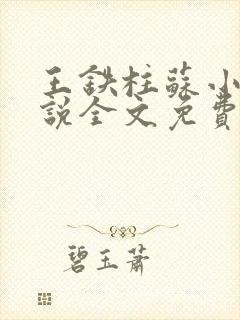 王鉄柱蘇小
說全文免費
碧玉蕭